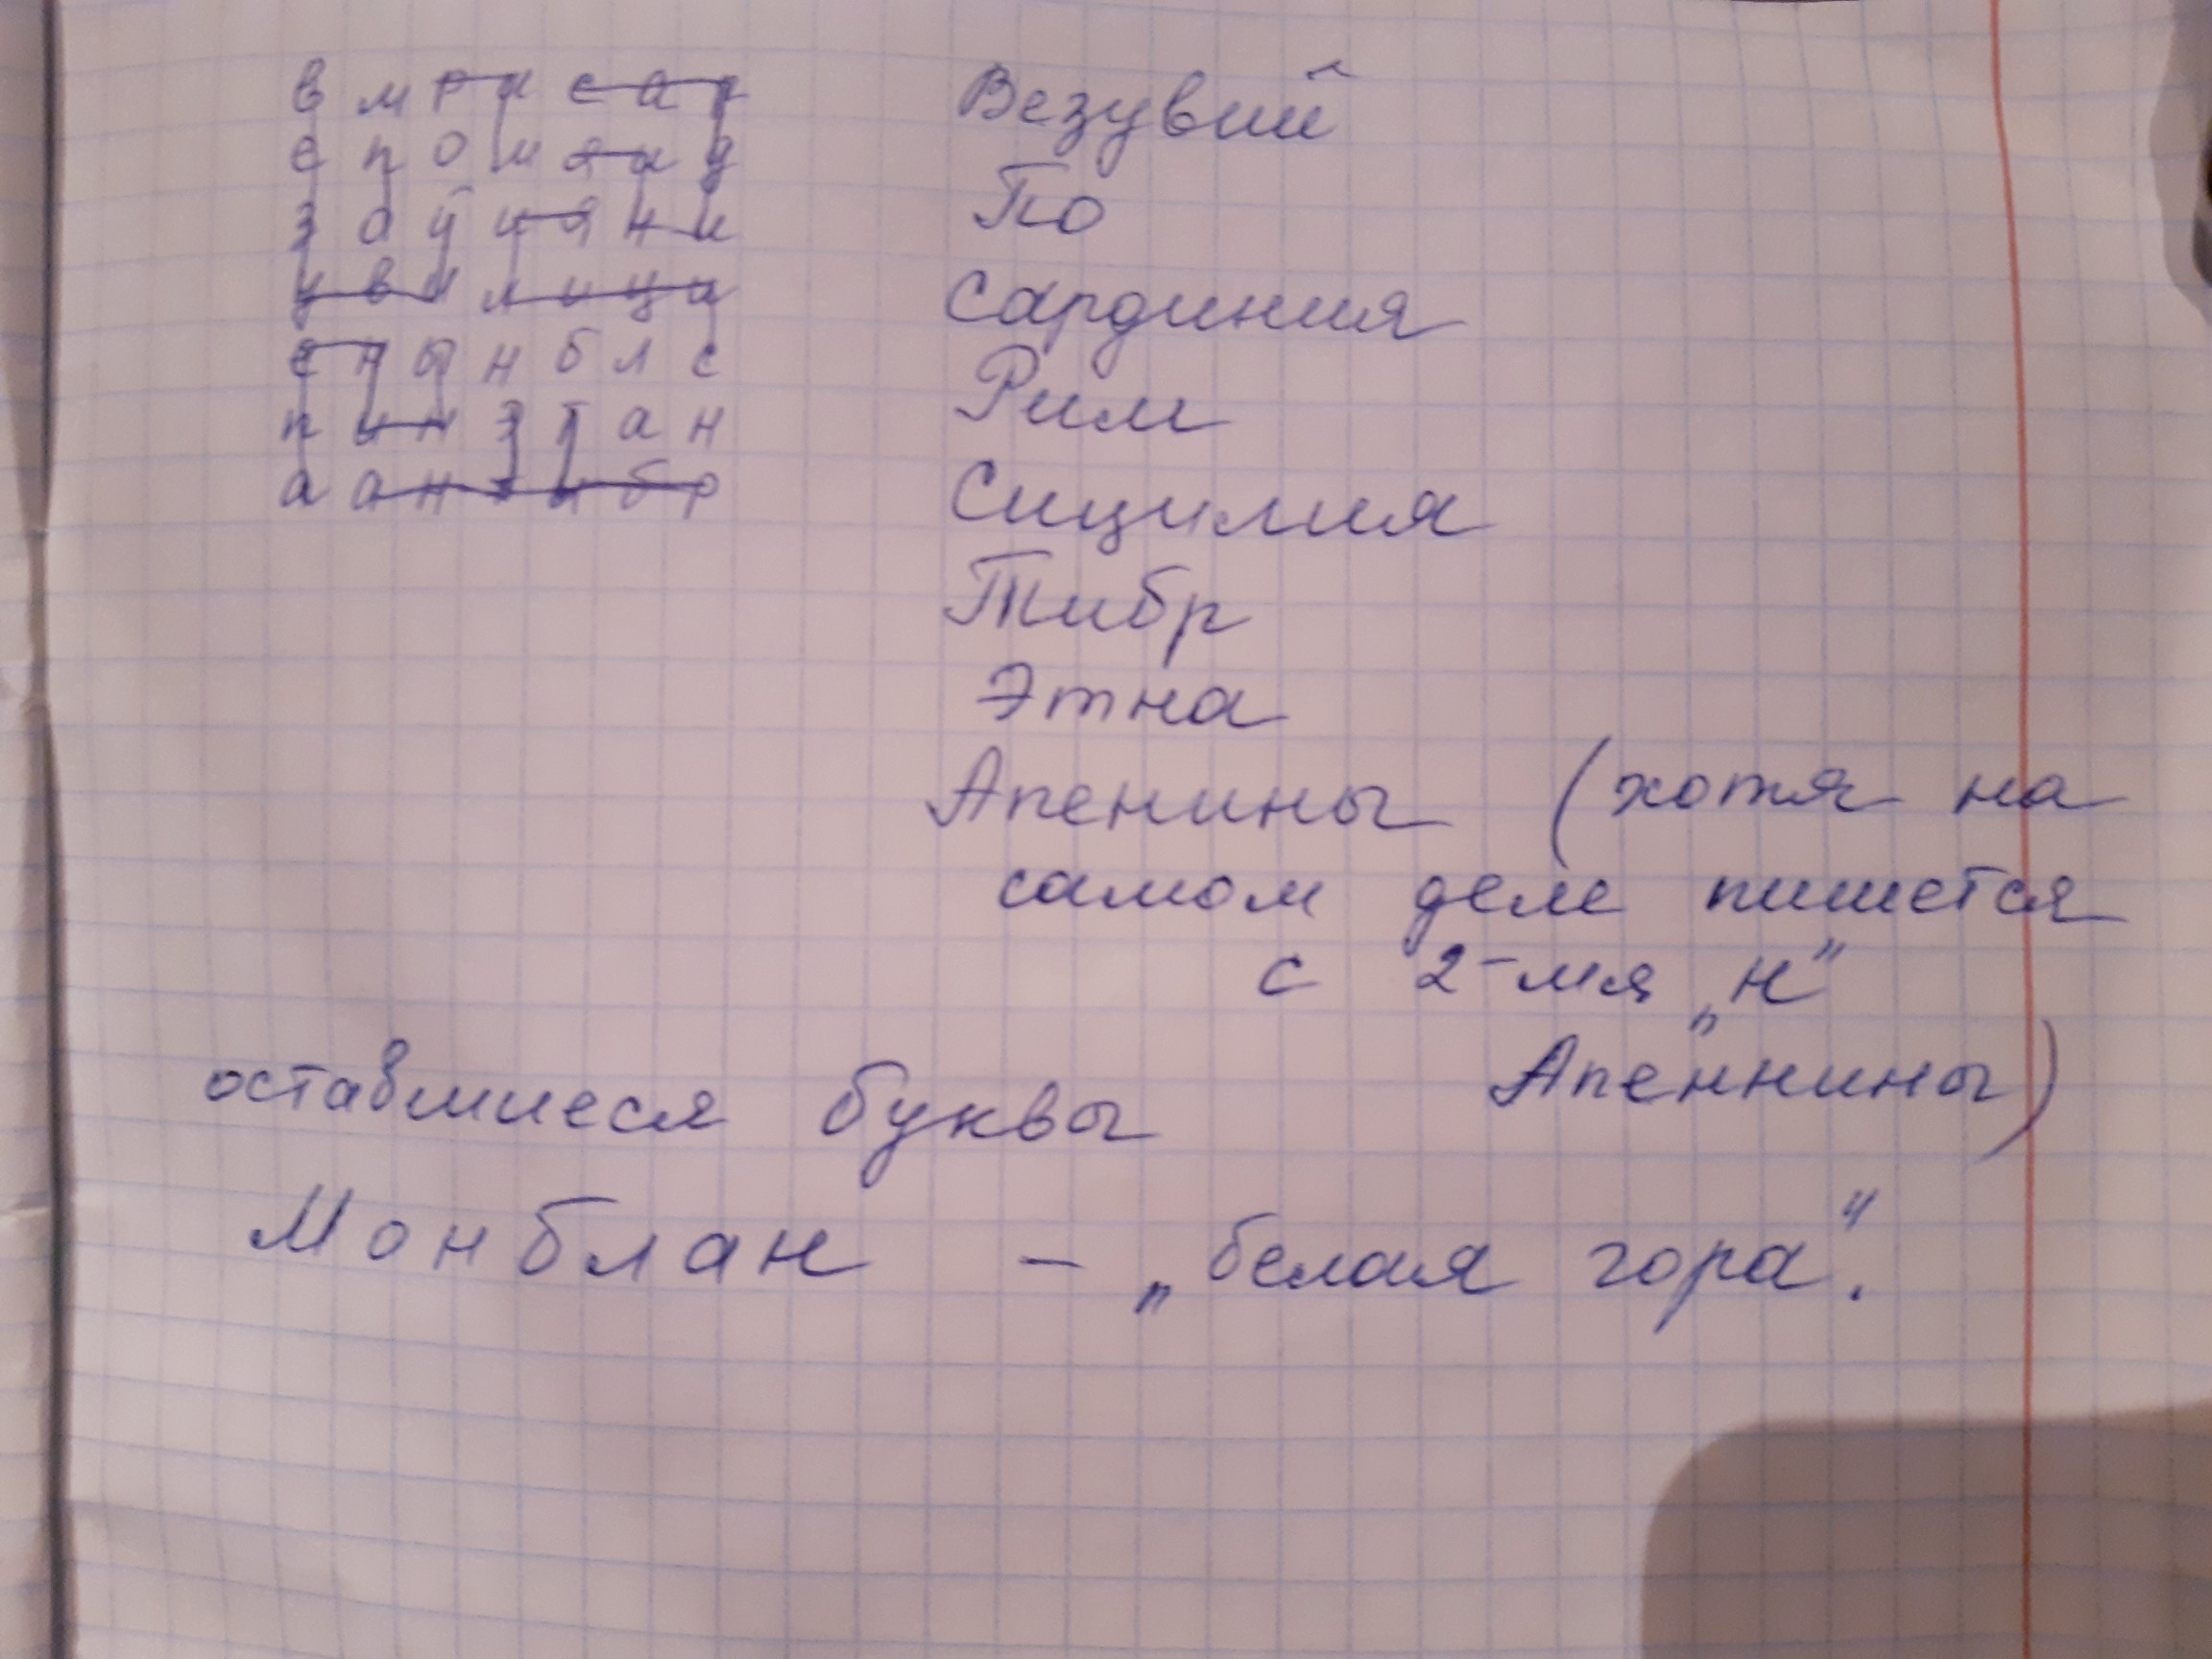 в м р и с а р
е п о м я и д
з о й и я н и
у в и л и ц и
е н ы н б л с
п и н э т а н
а а н т и б р
Везувий
По
Сардиния
Рим
Сицилия
Тибр
Этна
Апенины (хотя на
самом деле пишется
с 2-мя „н"
Апеннины)
оставшиеся буквы
Монблан – „белая гора".